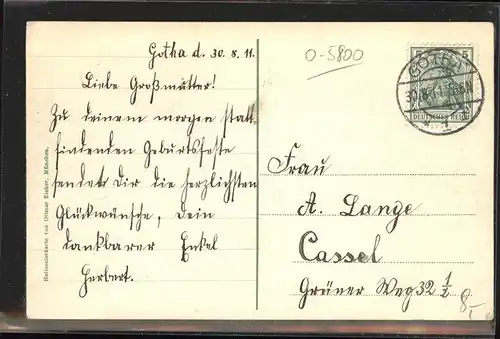 Gotha d. 30.8.11.
Liebe Großmutter!
Zu deinem morgen statt-
findenden Geburtsfeste
sendet Dir die herzlichsten
Glückwünsche, Dein
dankbarer Enkel
Herbert.
Heliocolorkarte von Ottmar Zieher, München.
0-5800
5 5
GOTHA
30.8.11
DEUTSCHES REICH
Frau
A. Lange
Cassel
Grüner Weg 32 1/2
8,-